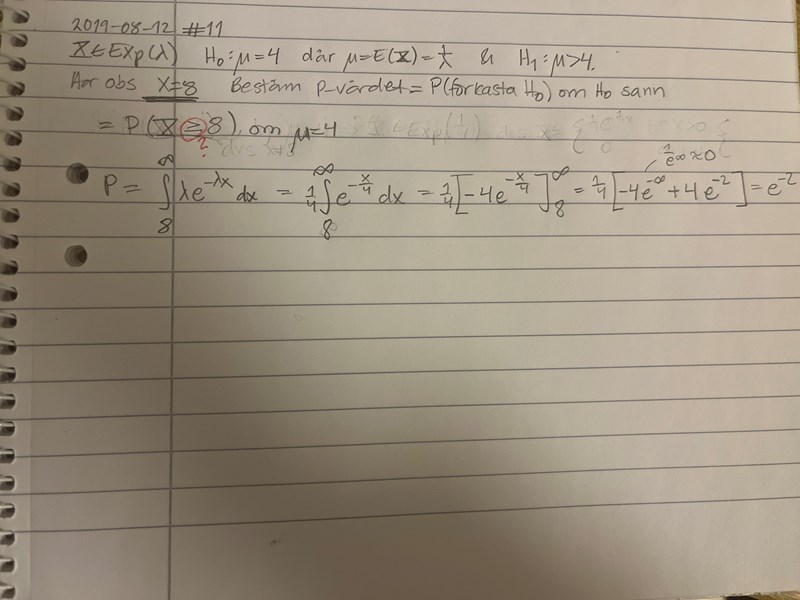 2019-08-12 #11
X∈Exp(λ) H₀: μ=4 där μ=E(X)=1/λ & H₁: μ>4.
Har obs x=8 Bestäm p-värdet = P(förkasta H₀) om H₀ sann
= P(X≥8), om μ=4
?
1/e^∞ ≈ 0
P = ∫₈^∞ λe^{-λx} dx = 1/4 ∫₈^∞ e^{-x/4} dx = 1/4 [-4e^{-x/4}]₈^∞ = 1/4 [-4e^{-∞} + 4e^{-2}] = e^{-2}